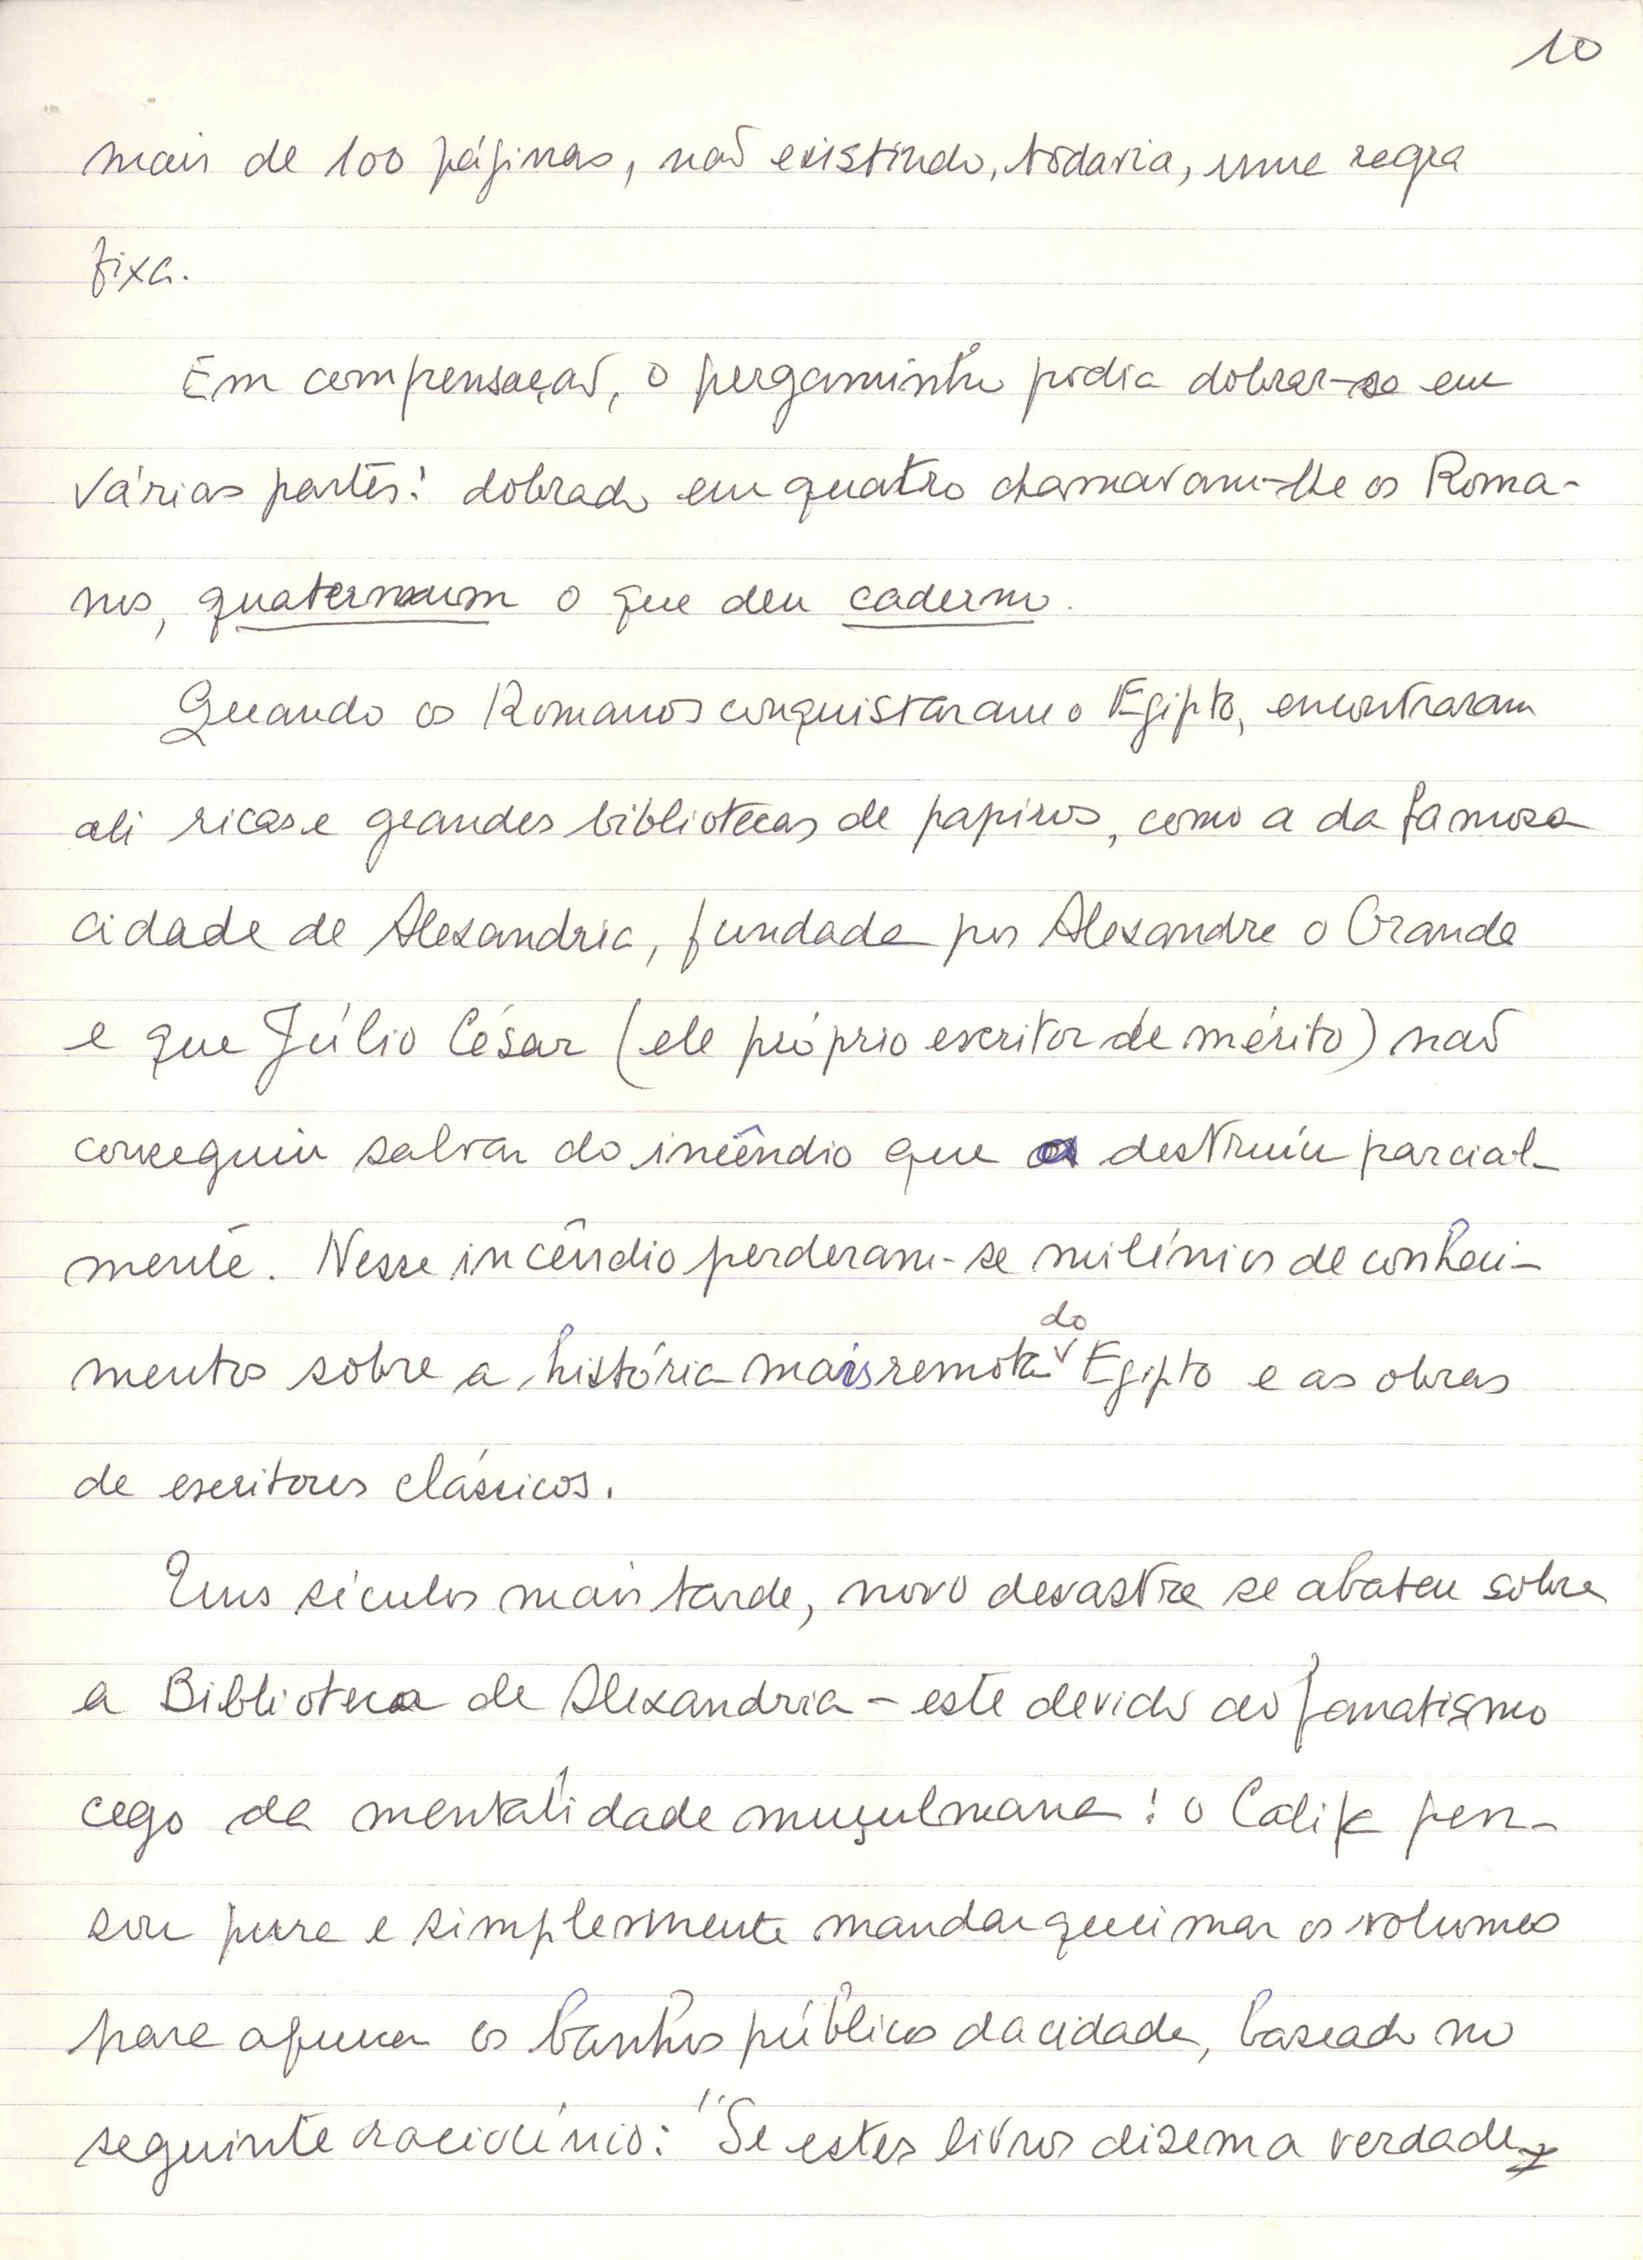 10
mais de 100 páginas, não existindo, todavia, uma regra
fixa.
Em compensação, o pergaminho podia dobrar-se em
várias partes: dobrado em quatro chamavam-lhe os Roma-
nos, quaternum o que deu caderno.
Quando os Romanos conquistaram o Egipto, encontraram
ali ricas e grandes bibliotecas de papiros, como a da famosa
cidade de Alexandria, fundada por Alexandre o Grande
e que Júlio César (ele próprio escritor de mérito) não
conseguiu salvar do incêndio que a destruíu parcial-
mente. Nesse incêndio perderam-se milénios de conheci-
mentos sobre a história mais remota do Egipto e as obras
de escritores clássicos.
Uns séculos mais tarde, novo desastre se abateu sobre
a Biblioteca de Alexandria - este devido ao fanatismo
cego da mentalidade muçulmana: o Califa pen-
sou pura e simplesmente mandar queimar os volumes
para aquecer os banhos públicos da cidade, baseado no
seguinte raciocínio: "Se estes livros dizem a verdade,